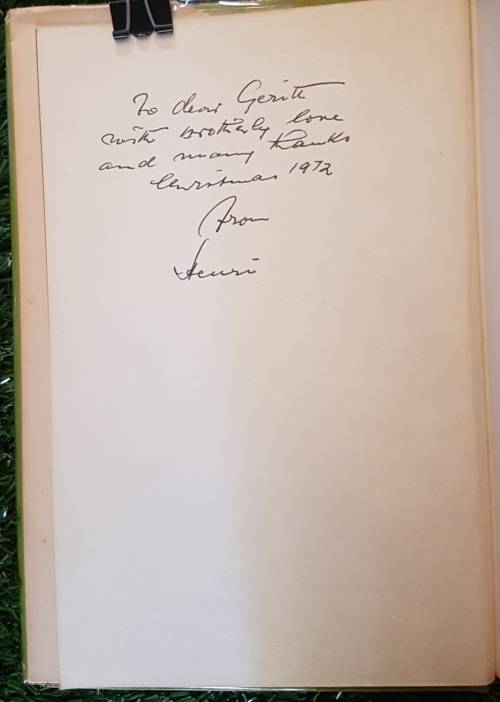 To dear Geritt
with brotherly love
and many thanks
Christmas 1972
from
Henri